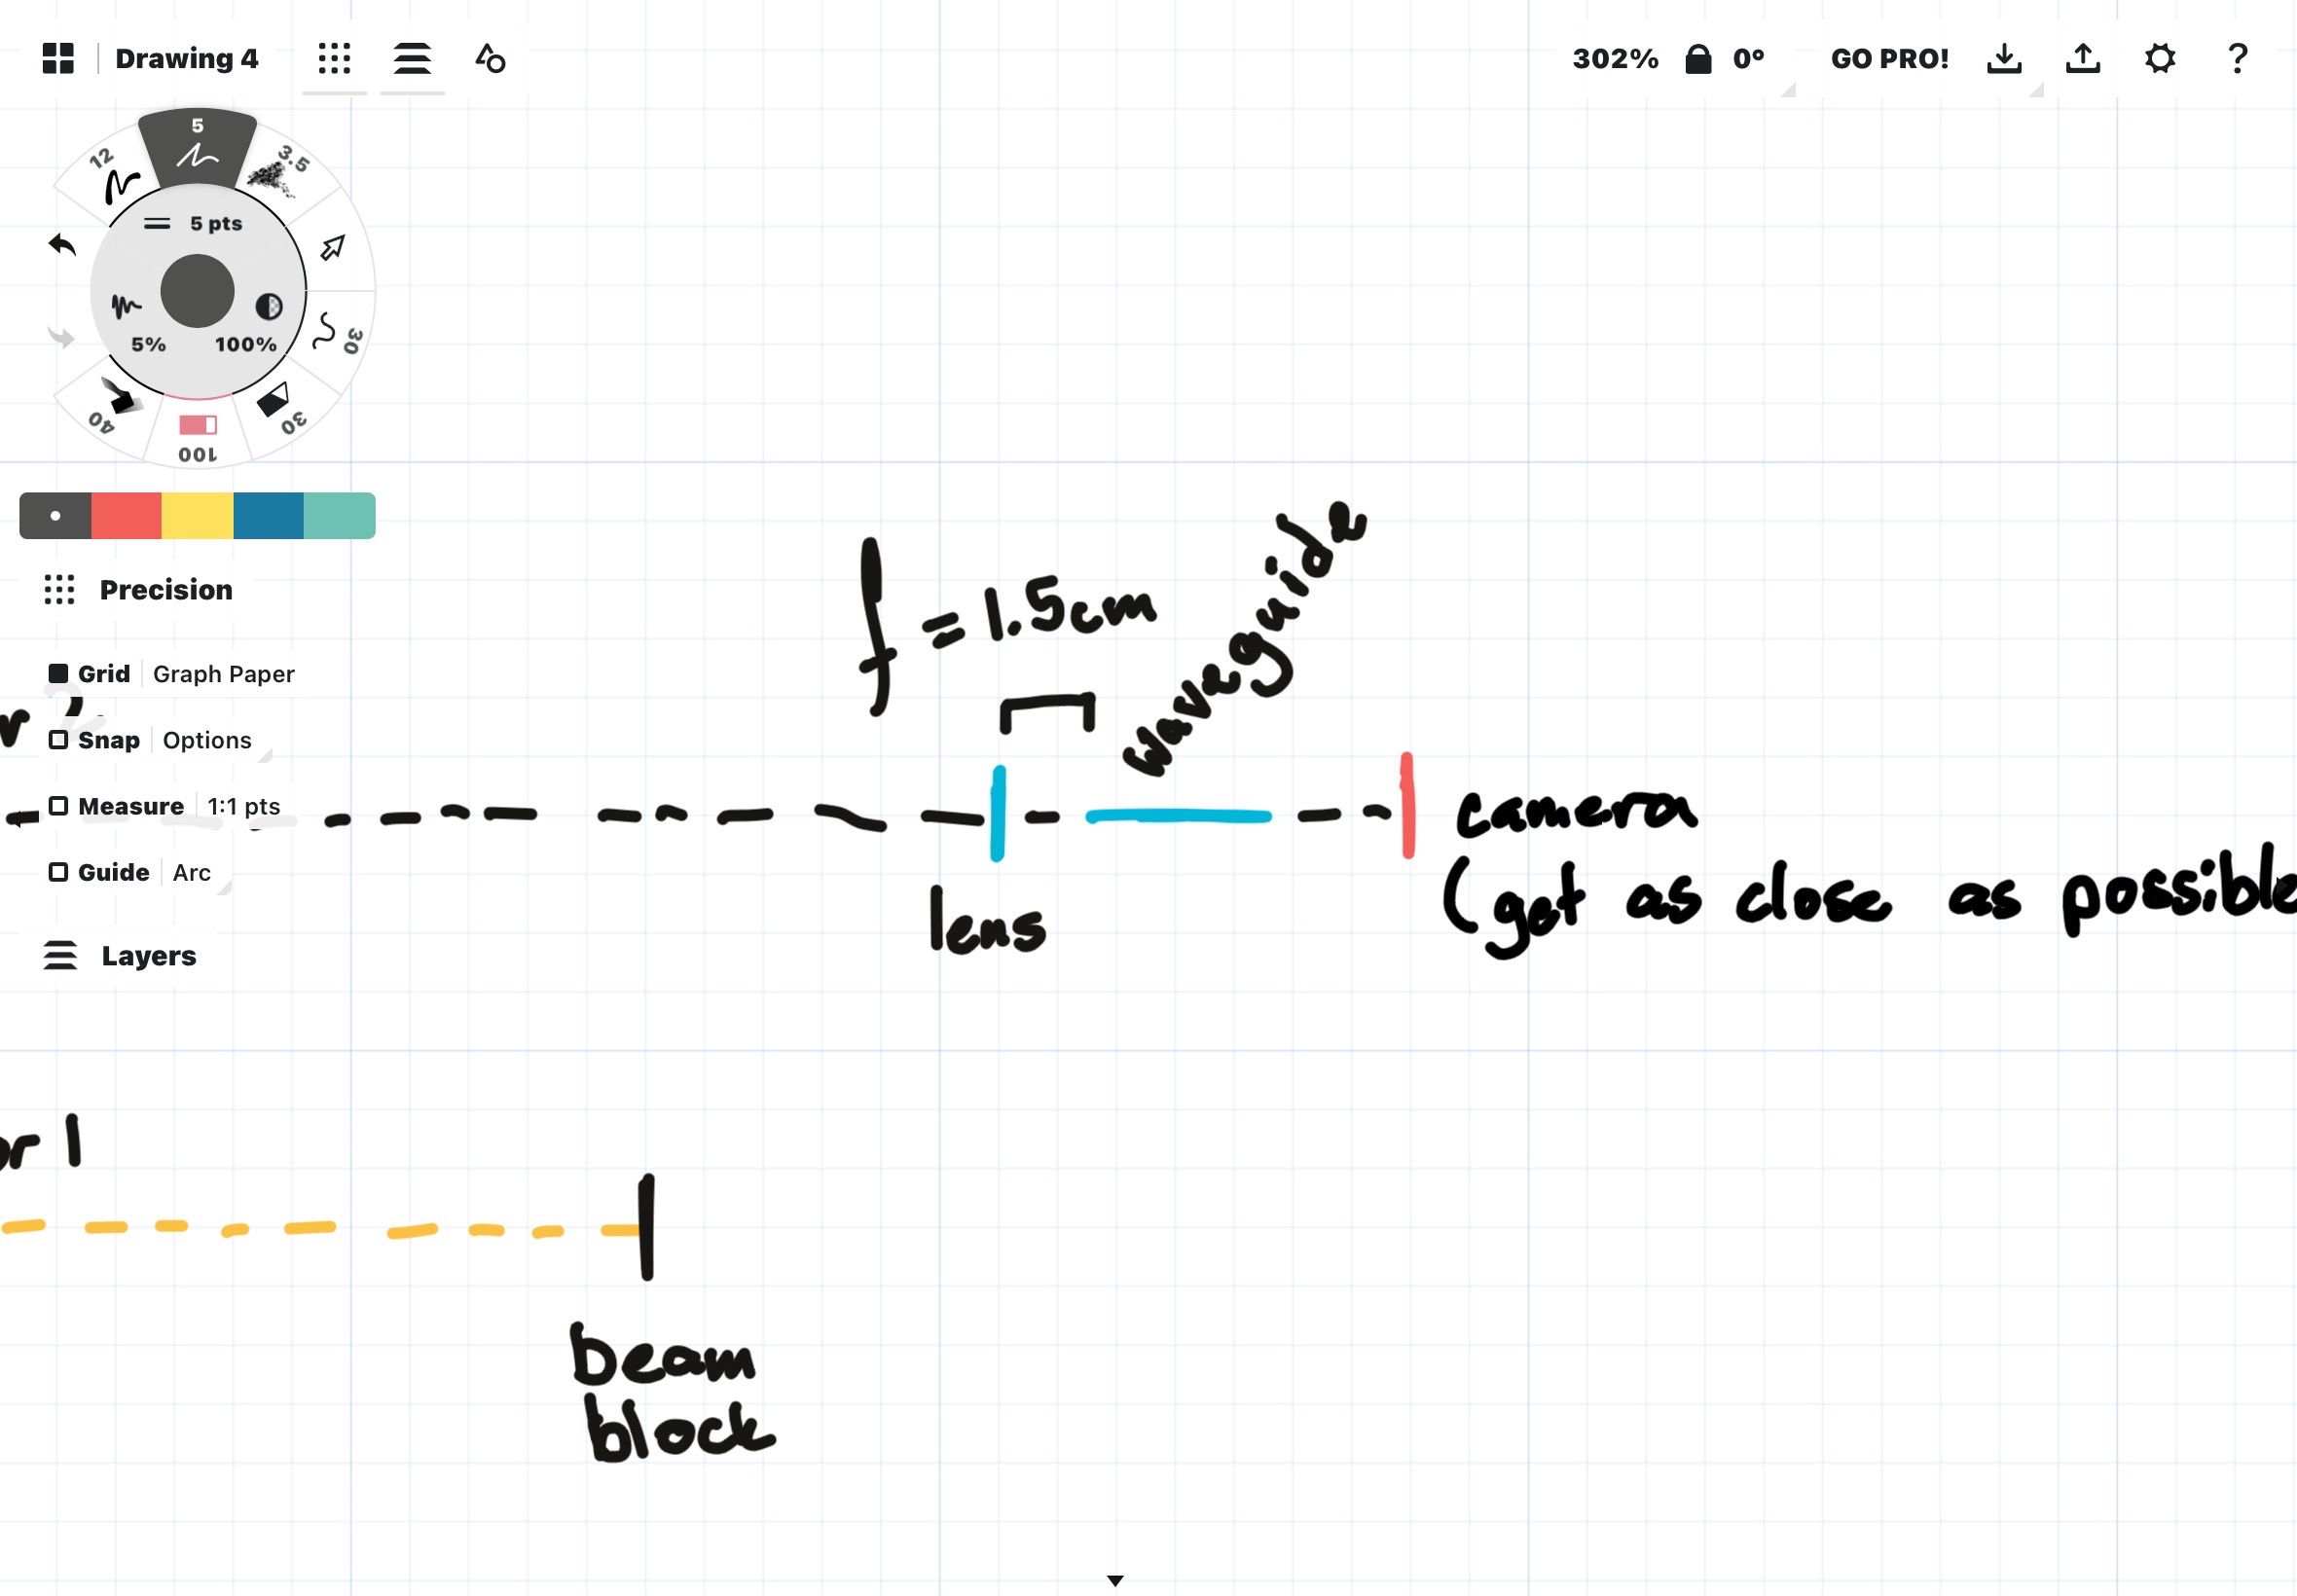 Drawing 4
302%
0°
GO PRO!
?
5
12
3.5
5 pts
5%
100%
30
30
40
100
Precision
Grid
Graph Paper
Snap
Options
Measure
1:1 pts
Guide
Arc
Layers
r 2
f = 1.5cm
waveguide
lens
camera
(get as close as possible
or 1
beam
block